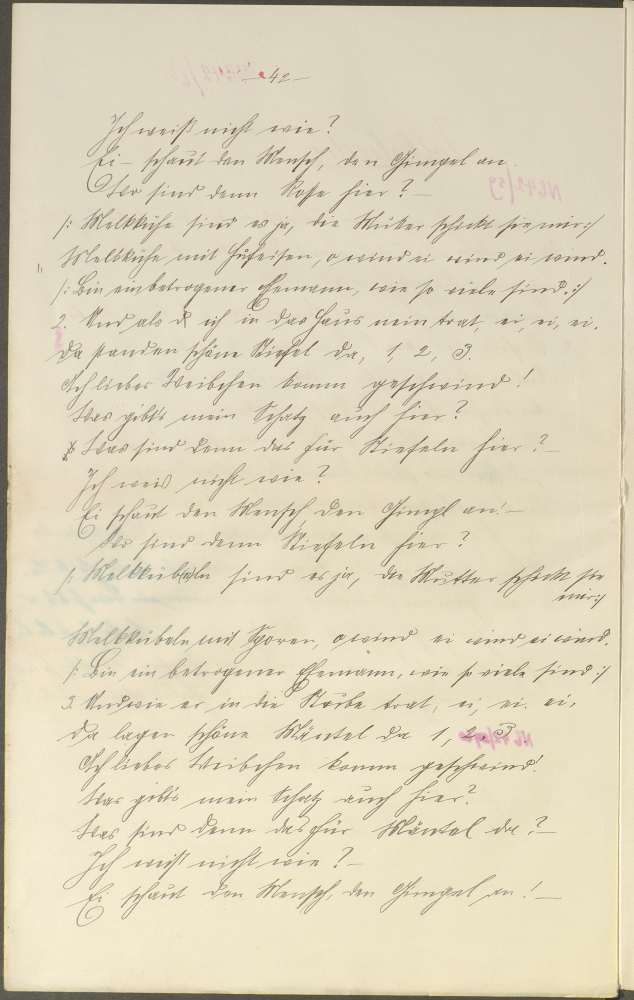 — 42 —
Ich weiß nicht wie?
Ei – schaut den Mensch, den Gimpel an.
Wo sind denn Rosse hier? —
/: Melkkühe sind es ja, die Mutter schickt sie mir :/
Melkkühe mit Hufeisen, o wind ei wind ei wind.
/: Bin ein betrogener Ehemann, wie so viele sind. :/
2. Und als ich in das Haus nein trat, ei, ei, ei.
Da standen schöne Stiefel da, 1, 2, 3.
Ach liebes Weibchen komm geschwind!
Was gibts mein Schatz auch hier?
Was sind denn das für Stiefeln hier? —
Ich weis nicht wie?
Ei schaut den Mensch, den Gimpl an! —
Wo sind denn Stiefeln hier?
/: Melkkübeln sind es ja, die Mutter schickt sie
mir :/
Melkkübeln mit Sporen, o wind ei wind ei wind.
/: Bin ein betrogener Ehemann, wie so viele sind :/
3. Und wie er in die Stube trat, ei, ei, ei,
Da lagen schöne Mäntel da 1, 2, 3.
Ach liebes Weibchen komm geschwind.
Was gibts mein Schatz auch hier?
Was sind denn das für Mäntel da? —
Ich weiß nicht wie? —
Ei schaut den Mensch, den Gimpel an! —